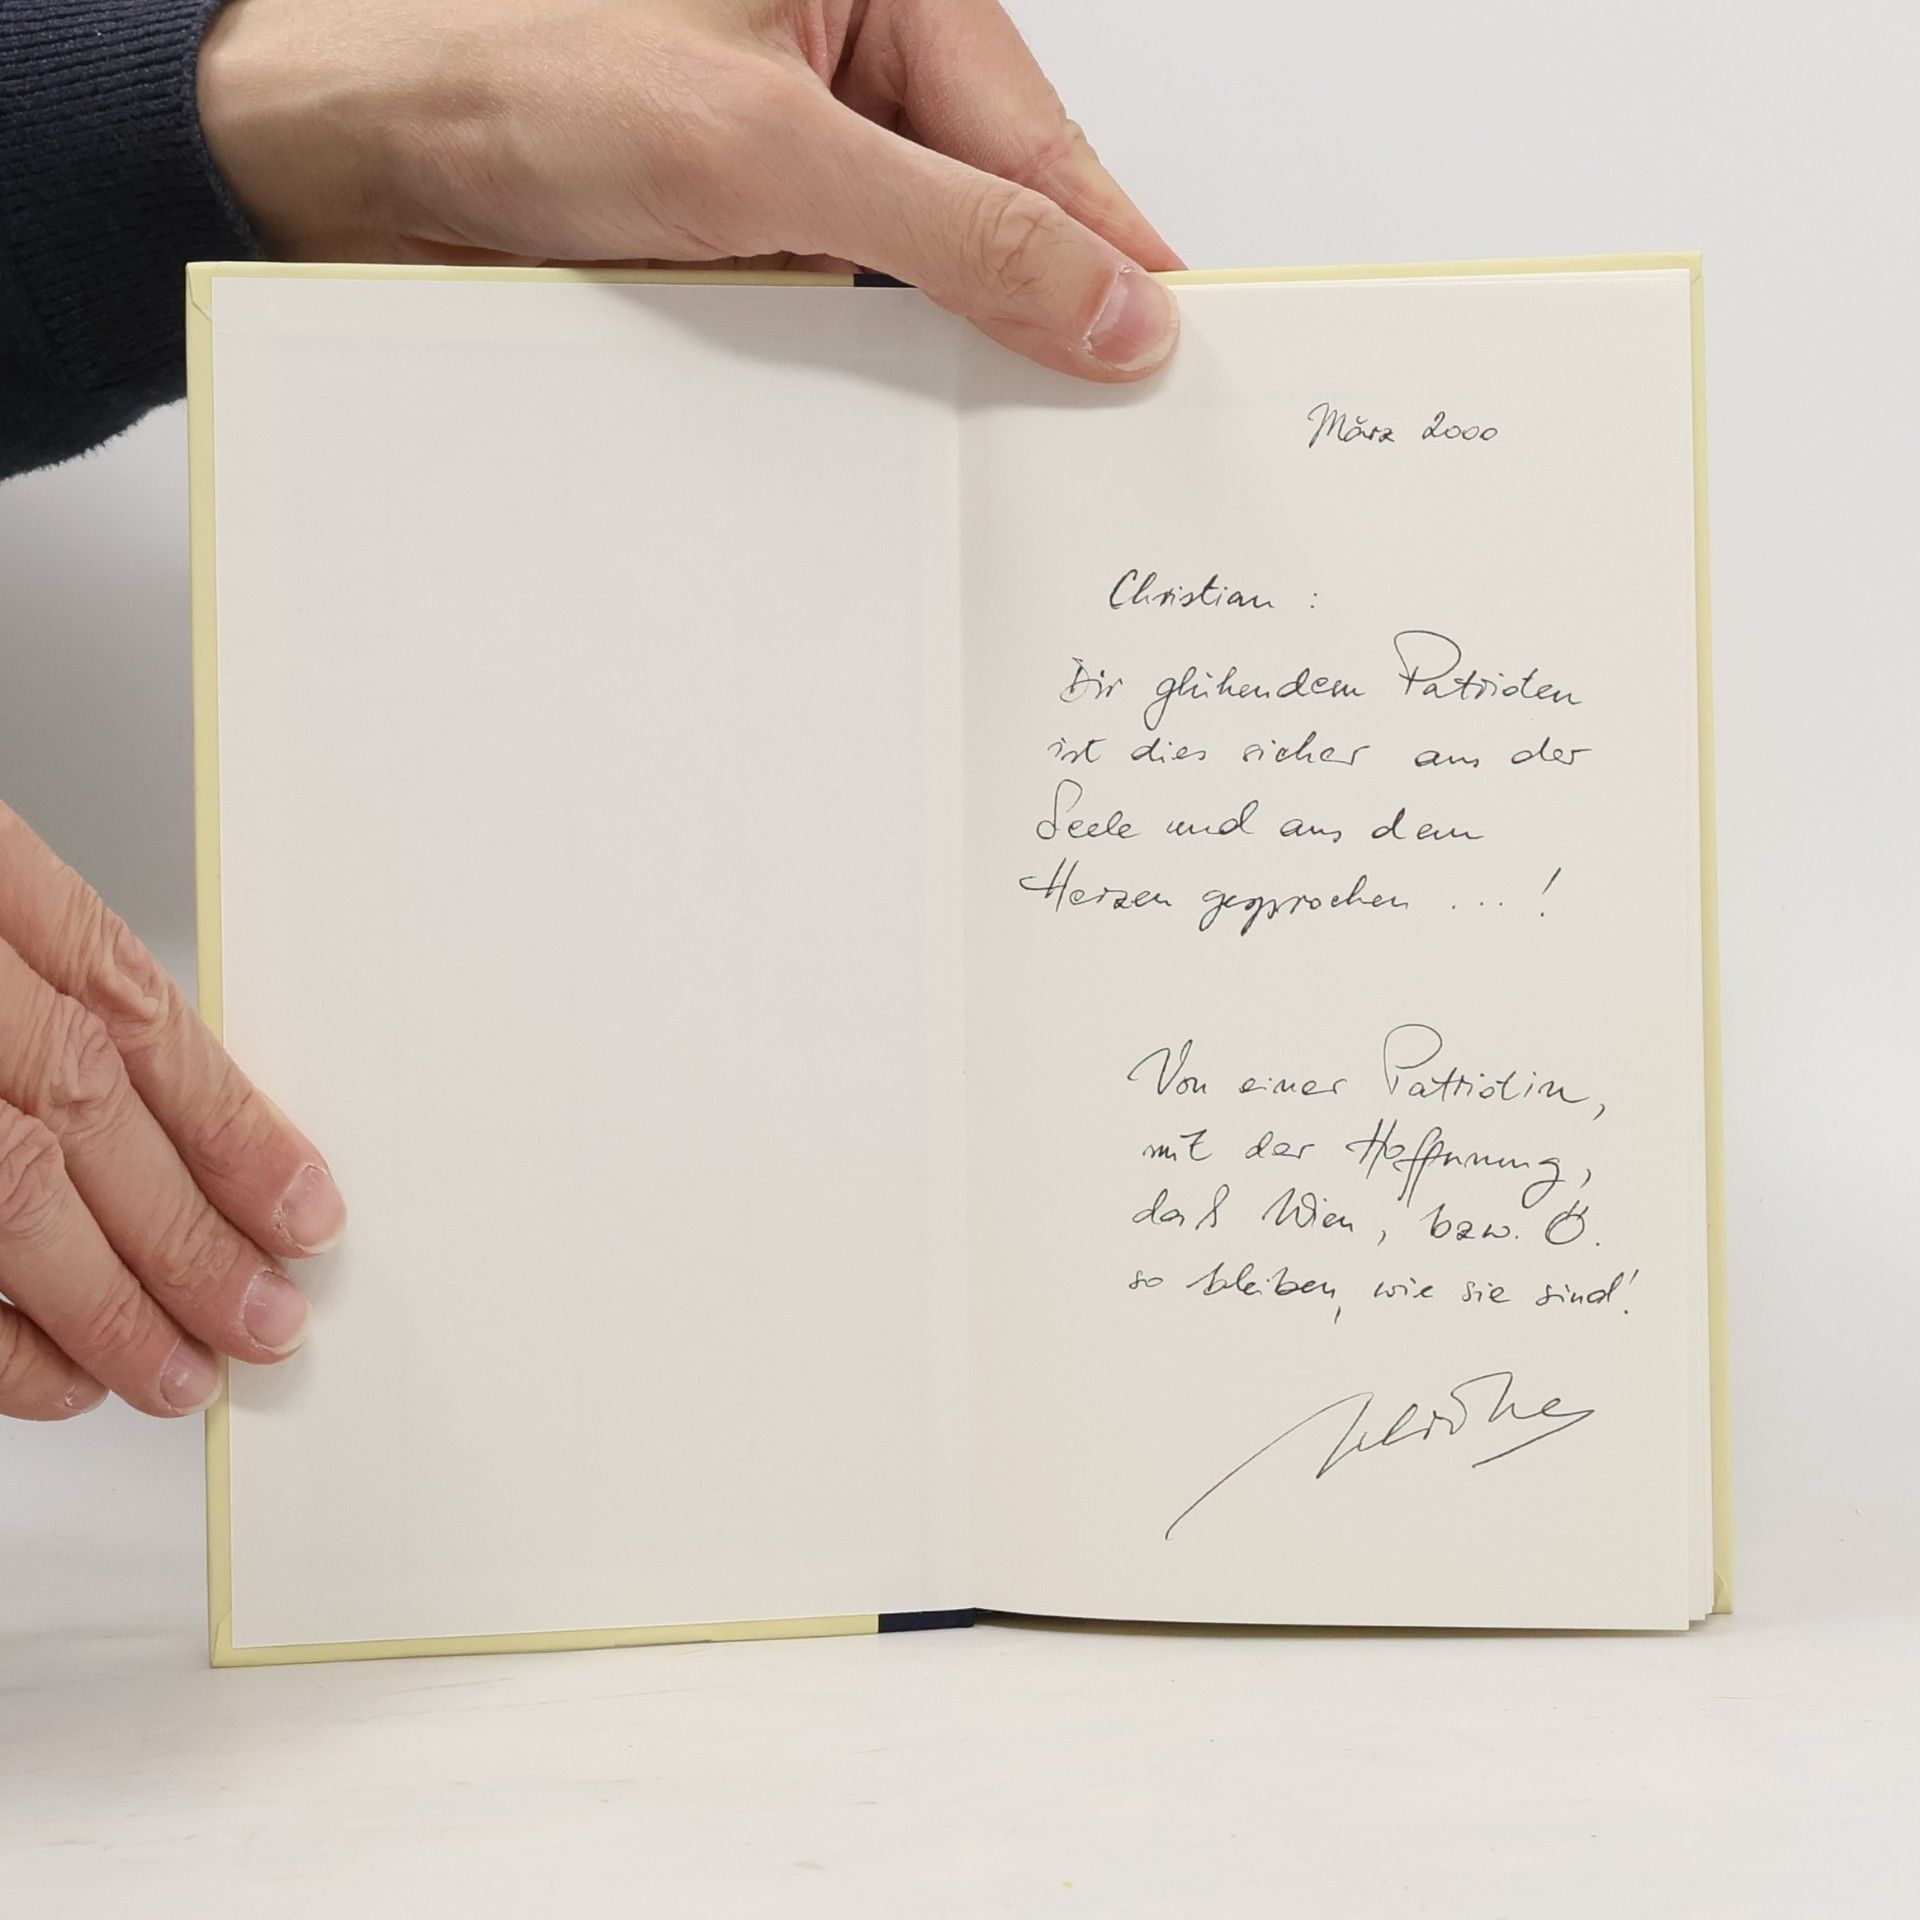 März 2000
Christian :
Dir glühendem Patrioten
ist dies sicher aus der
Seele und aus dem
Herzen gesprochen ... !
Von einer Patriotin,
mit der Hoffnung,
daß Wien, bzw. Ö.
so bleiben, wie sie sind!